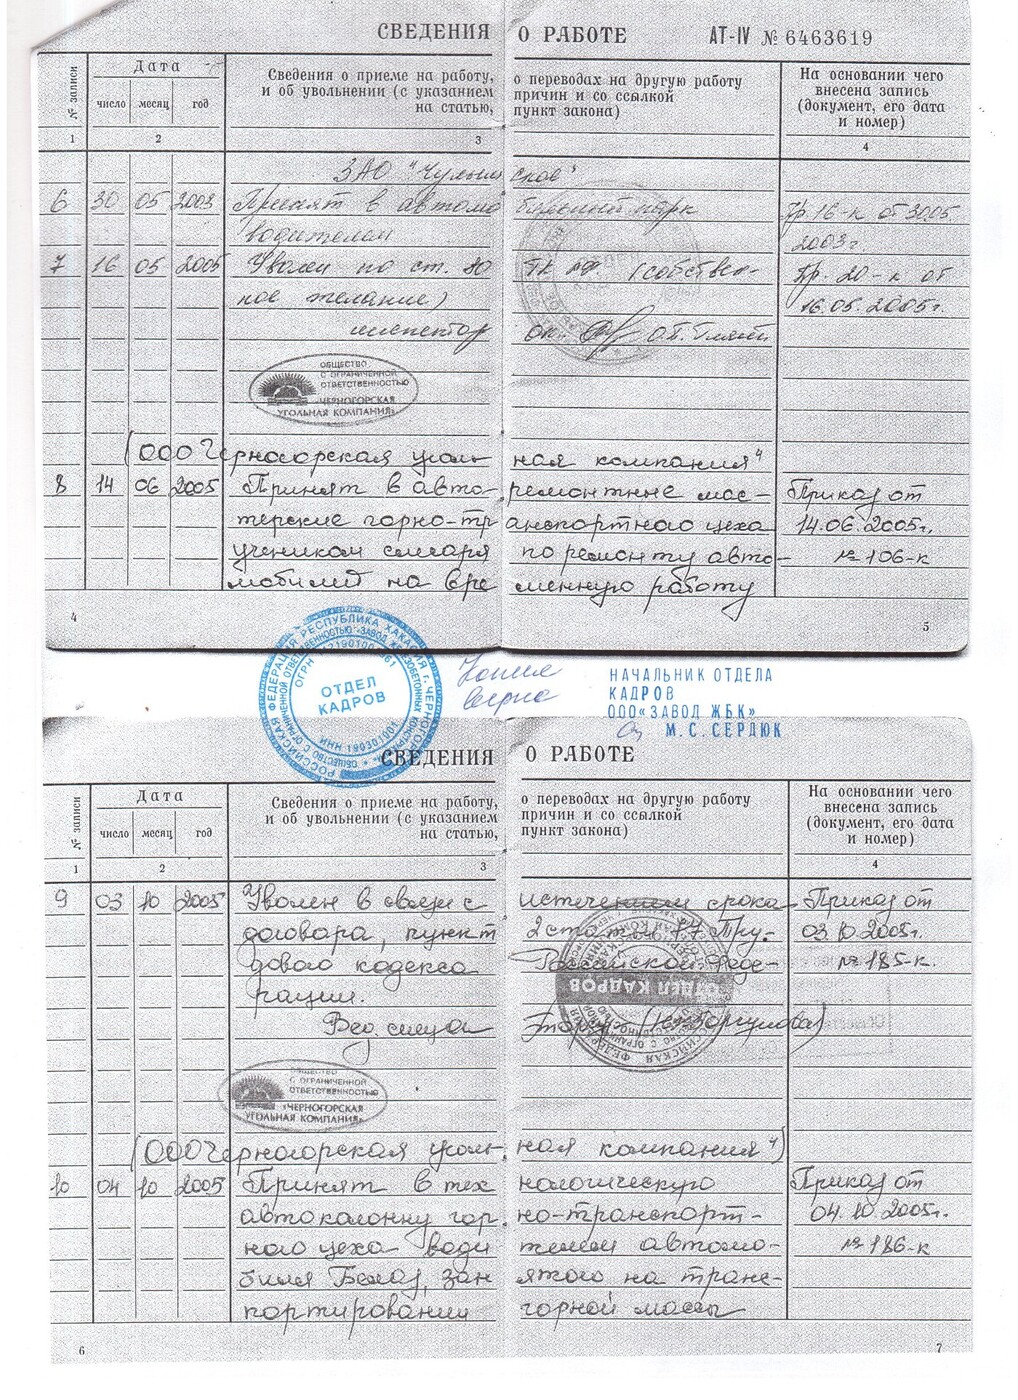 СВЕДЕНИЯ О РАБОТЕ АТ-IV № 6463619
№ записи
Дата
число месяц год
Сведения о приеме на работу, о переводах на другую работу
и об увольнении (с указанием причин и со ссылкой
на статью, пункт закона)
На основании чего
внесена запись
(документ, его дата
и номер)
1 2 3 4
ЗАО "Чулымское"
6 30 05 2003 Принят в автомобильный парк Пр 16-к от 30.05
водителем 2003г.
7 16 05 2005 Уволен по ст. 80 ТК РФ (собствен- Пр. 20-к от
ное желание) 16.05.2005г.
инспектор ок.
ОБЩЕСТВО
С ОГРАНИЧЕННОЙ
ОТВЕТСТВЕННОСТЬЮ
«ЧЕРНОГОРСКАЯ
УГОЛЬНАЯ КОМПАНИЯ»
(ООО Черногорская угольная компания"
8 14 06 2005 Принят в авто-ремонтные мас- Приказ от
терские горно-транспортного цеха 14.06.2005г.
учеником слесаря по ремонту авто- № 106-к
мобилей на временную работу
4 5
РОССИЙСКАЯ ФЕДЕРАЦИЯ РЕСПУБЛИКА ХАКАСИЯ г. ЧЕРНОГОРСК
ОБЩЕСТВО С ОГРАНИЧЕННОЙ ОТВЕТСТВЕННОСТЬЮ «ЗАВОД ЖЕЛЕЗОБЕТОННЫХ КОНСТРУКЦИЙ»
ОТДЕЛ
КАДРОВ
Копия
верна
НАЧАЛЬНИК ОТДЕЛА
КАДРОВ
ООО «ЗАВОД ЖБК»
М.С.СЕРДЮК
СВЕДЕНИЯ О РАБОТЕ
№ записи
Дата
число месяц год
Сведения о приеме на работу, о переводах на другую работу
и об увольнении (с указанием причин и со ссылкой
на статью, пункт закона)
На основании чего
внесена запись
(документ, его дата
и номер)
1 2 3 4
9 03 10 2005 Уволен в связи с истечением срока Приказ от
договора, пункт 2 статья 77 Тру- 03.10.2005г.
дового кодекса Российской Феде- № 185-к.
рации.
Вед. специалист
ОТДЕЛ КАДРОВ
ОБЩЕСТВО
С ОГРАНИЧЕННОЙ
ОТВЕТСТВЕННОСТЬЮ
«ЧЕРНОГОРСКАЯ
УГОЛЬНАЯ КОМПАНИЯ»
(ООО Черногорская угольная компания")
10 04 10 2005 Принят в технологическую Приказ от
автоколонну горно-транспорт- 04.10.2005г.
ного цеха водителем автомо- № 186-к
биля Белаз, занятого на транс-
портировании горной массы
6 7